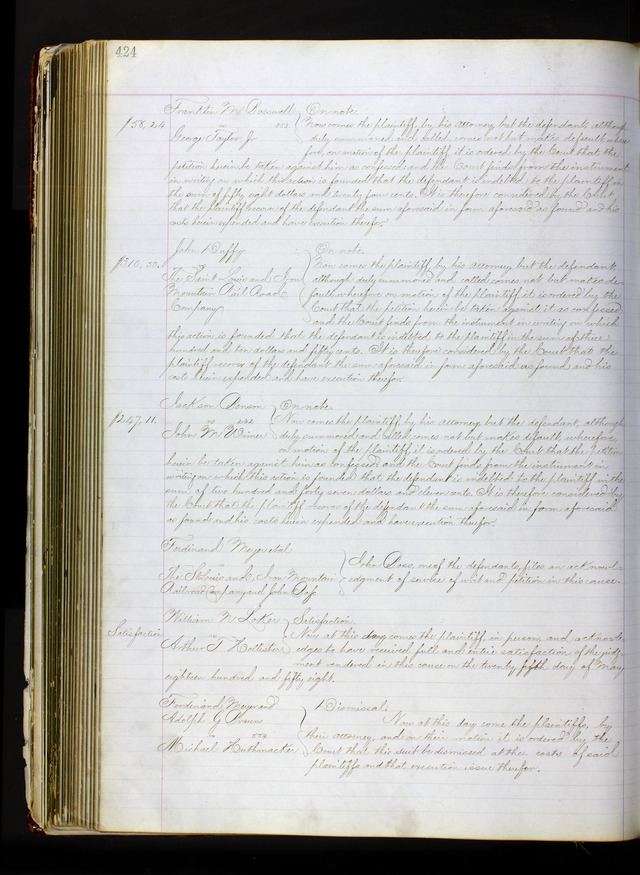 424
Franklin M Boswell } On note
$58.24 vs 353 Now comes the plaintiff by his attorney, but the defendant, although
George Taylor Jr duly summoned and called comes not but makes default where
fore on motion of the plaintiff it is ordered by the Court that the
petition herein be taken against him as confessed and the Court finds from the instrument
in writing on which this action is founded that the defendant is indebted to the plaintiff in
the sum of fifty eight dollars and twenty four cents. It is therefore considered by the Court
that the plaintiff recover of the defendant the sum aforesaid in form aforesaid as found and his
costs herein expended and have execution therefor.
John Duffy } On note
$310.50. Now comes the plaintiff by his attorney, but the defendant,
The Saint Louis and Iron although duly summoned and called comes not but makes de-
Mountain Rail Road fault, wherefore on motion of the plaintiff it is ordered by the
Company Court that the petition herein be taken against it as confessed
and the Court finds from the instrument in writing on which
this action is founded that the defendant is indebted to the plaintiff in the sum of three
hundred and ten dollars and fifty cents. It is therefore considered by the Court that the
plaintiff recover of the defendant the sum aforesaid in form aforesaid as found, and his
costs herein expended and have execution therefor.
Jackson Denson } On note
$247.11. Now comes the plaintiff by his attorney, but the defendant, although
John M Wimer duly summoned and called comes not but makes default, wherefore
on motion of the plaintiff it is ordered by the Court that the petition
herein be taken against him as confessed, and the Court finds from the instrument in
writing on which this action is founded that the defendant is indebted to the plaintiff in the
sum of two hundred and forty seven dollars and eleven cents. It is therefore considered by
the Court that the plaintiff recover of the defendant the sum aforesaid in form aforesaid
as found and his costs herein expended and have execution therefor.
Ferdinand Meyer et al
} John Doss, one of the defendants, files an acknowl-
The St Louis and Iron Mountain edgment of service of writ and petition in this cause.
Railroad Company and John Doss
William N Loker } Satisfaction.
Satisfaction vs Now at this day comes the plaintiff, in person, and acknowl-
Arthur T Hollister edges to have received full and entire satisfaction of the judg-
ment rendered in this cause on the twenty fifth day of May
eighteen hundred and fifty eight.
Ferdinand Meyer and } Dismissal
Adolph G Braun Now at this day come the plaintiffs, by
vs their attorney, and on their motion it is ordered by the
Michael Huthmacker Court that this suit be dismissed at the costs of said
plaintiffs and that execution issue therefor.